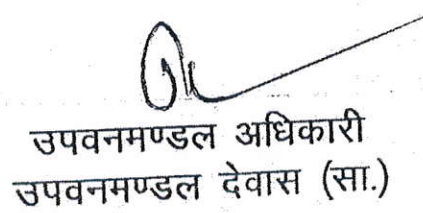 उपवनमण्डल अधिकारी
उपवनमण्डल देवास (सा.)